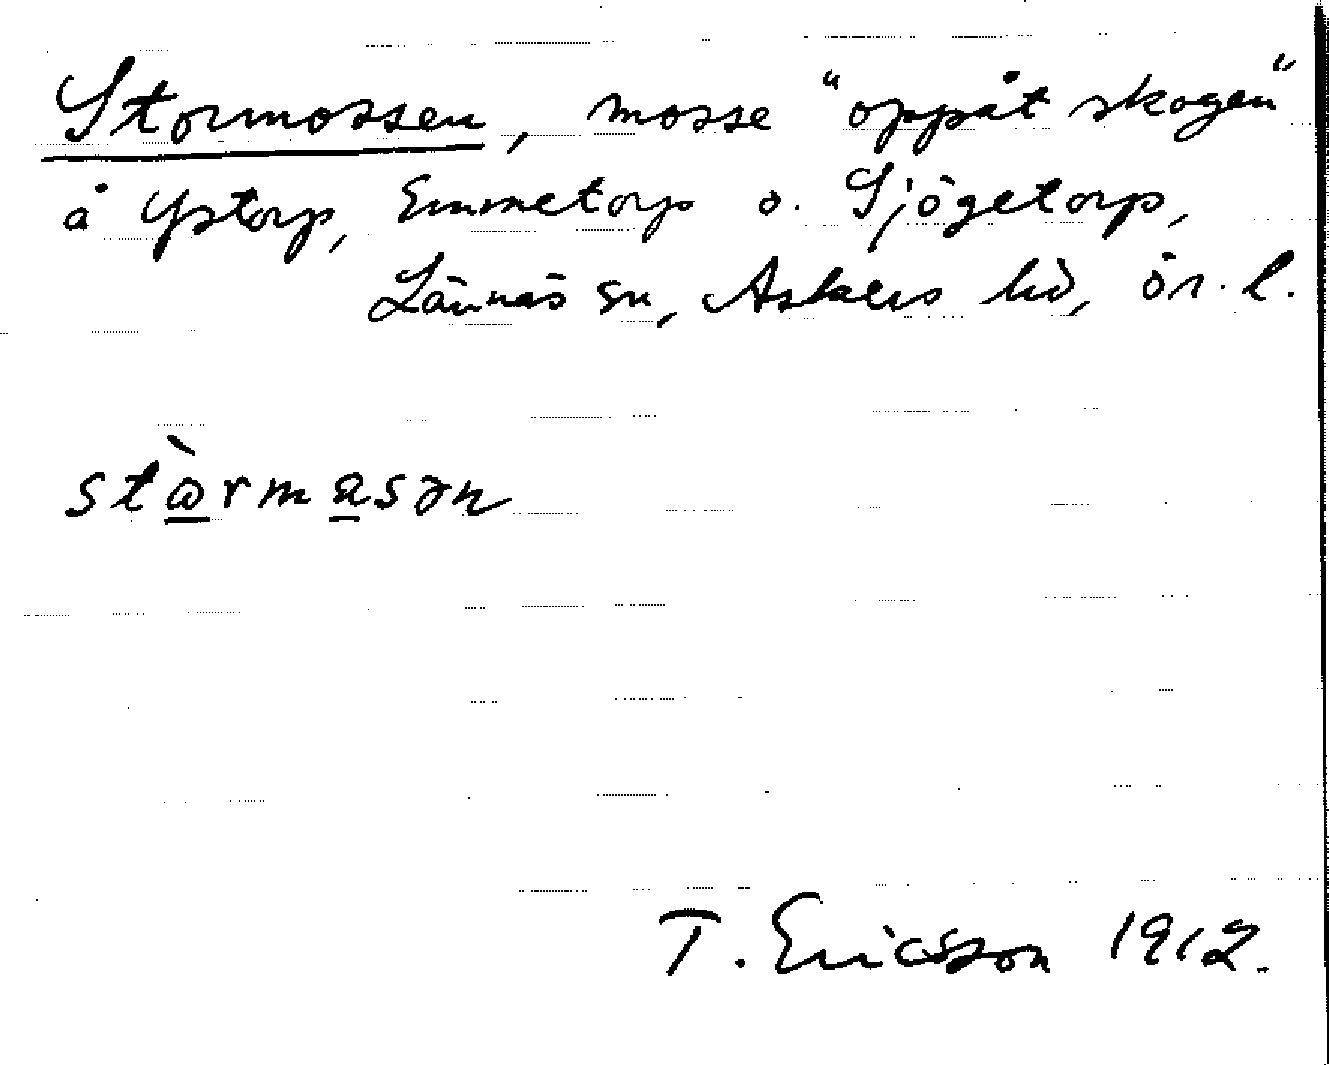 Stormossen, mosse "oppåt skogen"
å Ystorp, Emmetorp o. Sjögetorp,
Lännäs sn, Askers hd, ör. l.
stὼ̲rma̲sən
T. Ericsson 1912.